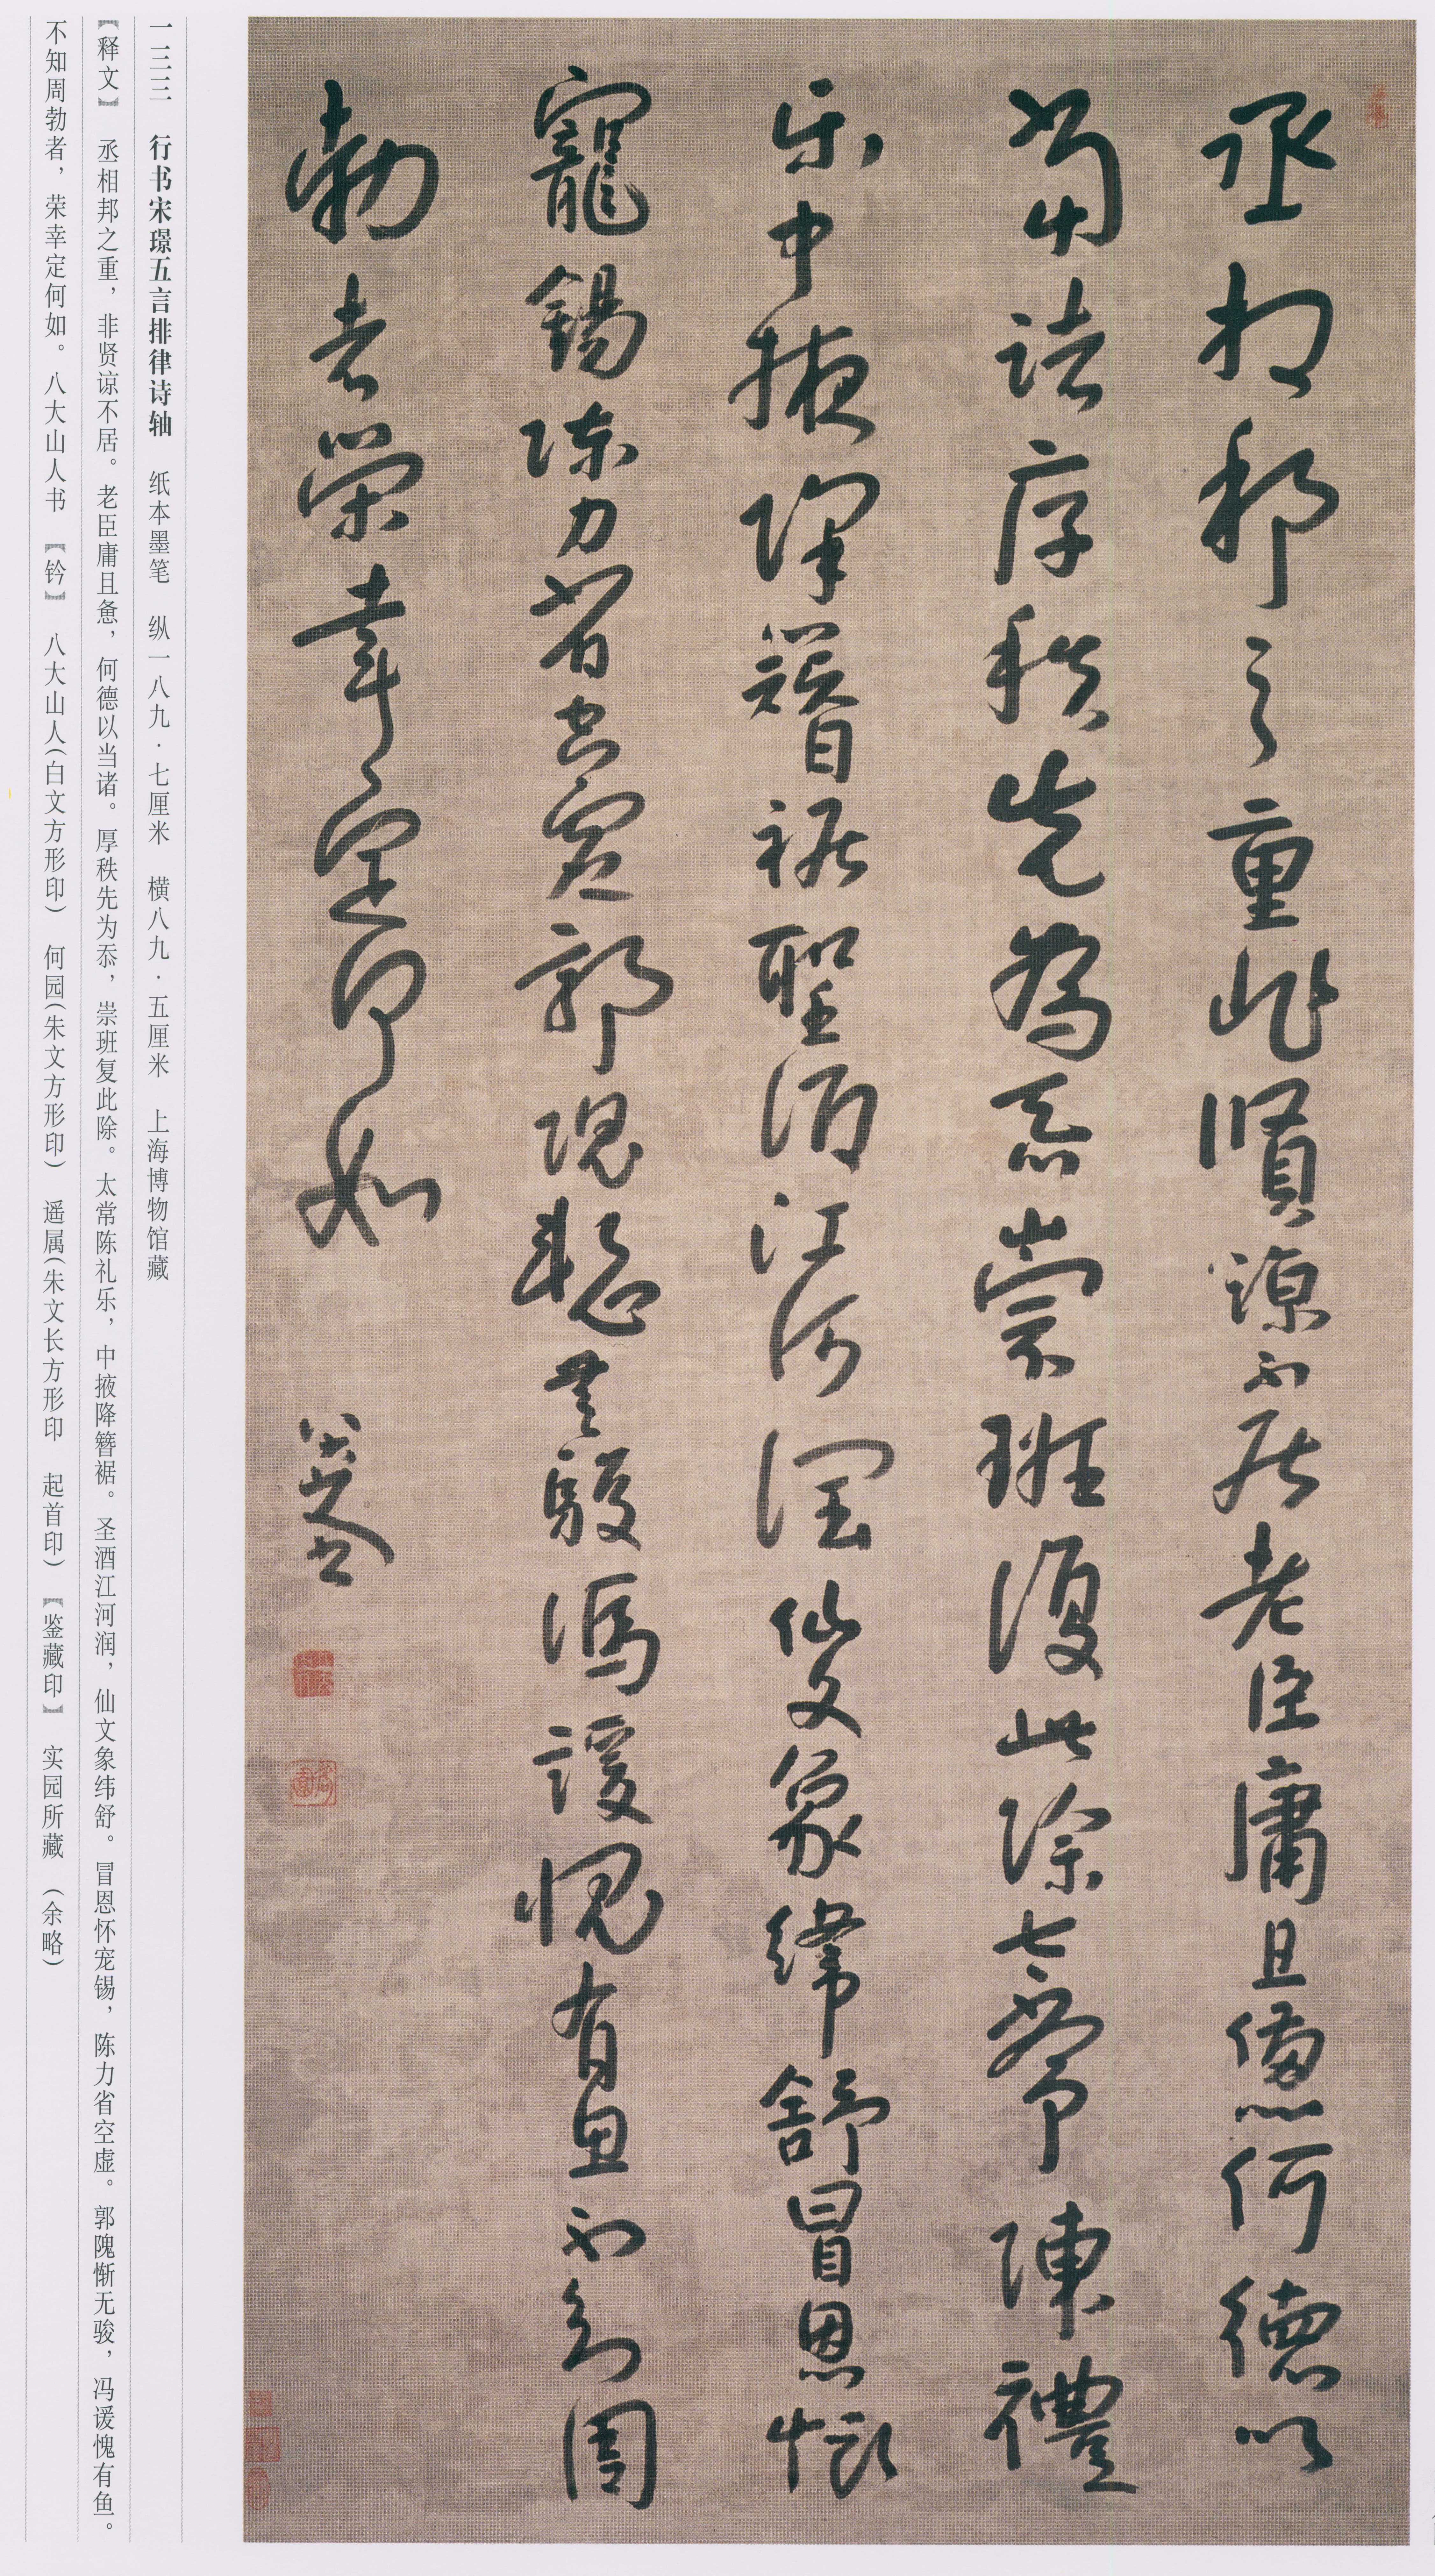 丞相邦之重非賢諒不居老臣庸且惫何德以
當諸厚秩先為忝崇班復此除太常陳禮
乐中掖降簪裾聖酒江河润仙文象緯舒冒恩怀
寵錫陳力省空虚郭隗慙無駿馮諼愧有鱼不知周
勃者榮幸定何如
八大山人書
一三三　行书宋璟五言排律诗轴　纸本墨笔　纵一八九·七厘米　横八九·五厘米　上海博物馆藏
【释文】　丞相邦之重，非贤谅不居。老臣庸且惫，何德以当诸。厚秩先为忝，崇班复此除。太常陈礼乐，中掖降簪裾。圣酒江河润，仙文象纬舒。冒恩怀宠锡，陈力省空虚。郭隗惭无骏，冯谖愧有鱼。
不知周勃者，荣幸定何如。八大山人书　【钤】　八大山人（白文方形印）　何园（朱文方形印）　遥属（朱文长方形印　起首印）　【鉴藏印】　实园所藏　（余略）